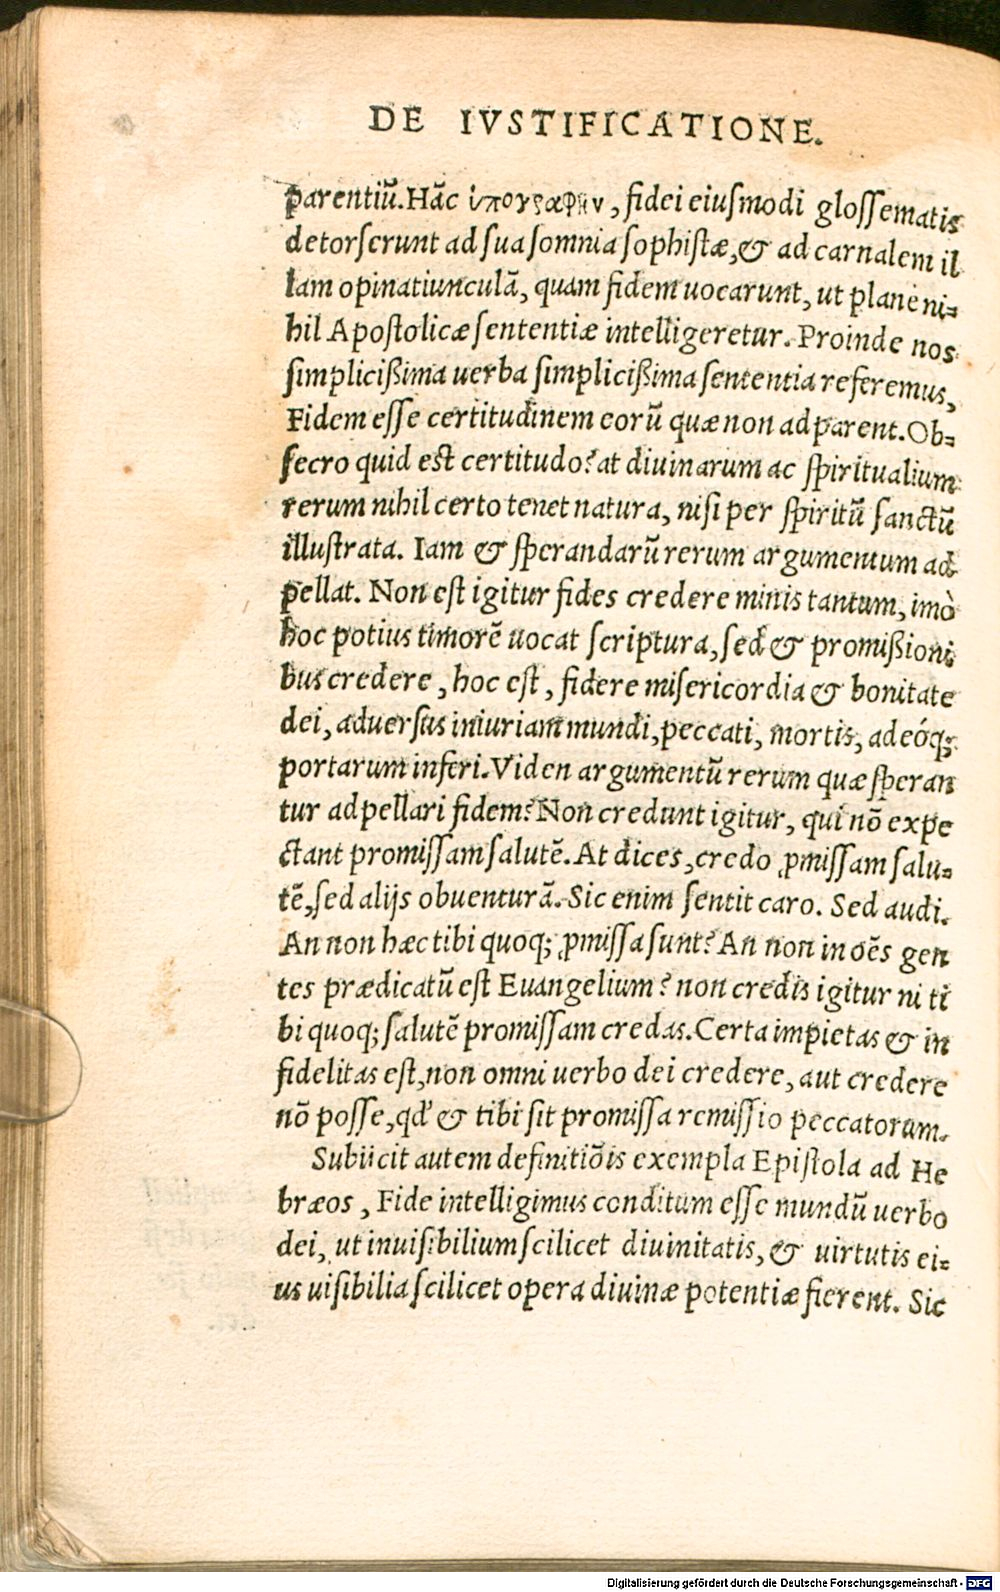 DE IVSTIFICATIONE.
parentiũ. Hãc ὑπογραφὴν, fidei eiuſmodi gloſſematis
detorſerunt ad ſua ſomnia ſophiſtæ, & ad carnalem il
lam opinatiunculã, quam fidem uocarunt, ut plane ni-
hil Apoſtolicæ ſententiæ intelligeretur. Proinde nos
ſimplicißima uerba ſimplicißima ſententia referemus,
Fidem eſſe certitudinem eorũ quæ non adparent. Ob-
ſecro quid eſt certitudo? at diuinarum ac ſpiritualium
rerum nihil certo tenet natura, niſi per ſpiritũ ſanctũ
illuſtrata. Iam & ſperandarũ rerum argumentum ad
pellat. Non eſt igitur fides credere minis tantum, imò
hoc potius timorẽ uocat ſcriptura, ſed & promißioni
bus credere, hoc eſt, fidere miſericordia & bonitate
dei, aduerſus iniuriam mundi, peccati, mortis, adeóq;
portarum inferi. Viden argumentũ rerum quæ ſperan
tur adpellari fidem? Non credunt igitur, qui nõ expe
ctant promiſſam ſalutẽ. At dices, credo ꝓmiſſam ſalu-
tẽ, ſed alijs obuenturã. Sic enim ſentit caro. Sed audi.
An non hæc tibi quoq; ꝓmiſſa ſunt? An non in oẽs gen
tes prædicatũ eſt Euangelium? non credis igitur ni ti
bi quoq; ſalutẽ promiſſam credas. Certa impietas & in
fidelitas eſt, non omni uerbo dei credere, aut credere
nõ poſſe, qd' & tibi ſit promiſſa remiſſio peccatorum.
Subiicit autem definitiõis exempla Epiſtola ad He
bræos, Fide intelligimus conditum eſſe mundũ uerbo
dei, ut inuiſibilium ſcilicet diuinitatis, & uirtutis ei-
us uiſibilia ſcilicet opera diuinæ potentiæ fierent. Sic
Digitalisierung gefördert durch die Deutsche Forschungsgemeinschaft - DFG